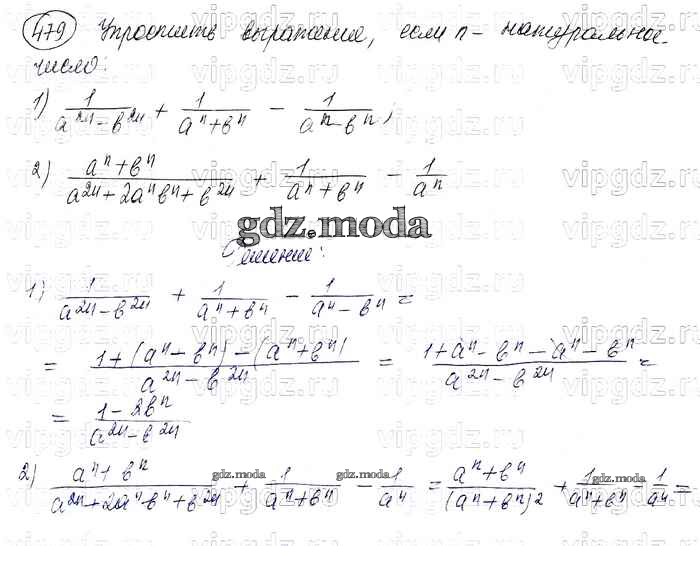 479 Упростить выражение, если n - натуральное
число:
1) 1/(a^2n - b^2n) + 1/(a^n + b^n) - 1/(a^n - b^n);
2) (a^n + b^n)/(a^2n + 2a^n b^n + b^2n) + 1/(a^n + b^n) - 1/a^n
gdz.moda
Решение:
1) 1/(a^2n - b^2n) + 1/(a^n + b^n) - 1/(a^n - b^n) =
= (1 + (a^n - b^n) - (a^n + b^n))/(a^2n - b^2n) = (1 + a^n - b^n - a^n - b^n)/(a^2n - b^2n) =
= (1 - 2b^n)/(a^2n - b^2n)
2) (a^n + b^n)/(a^2n + 2a^n b^n + b^2n) + 1/(a^n + b^n) - 1/a^n = (a^n + b^n)/(a^n + b^n)^2 + 1/(a^n + b^n) - 1/a^n =
gdz.moda gdz.moda gdz.moda
vipgdz.ru